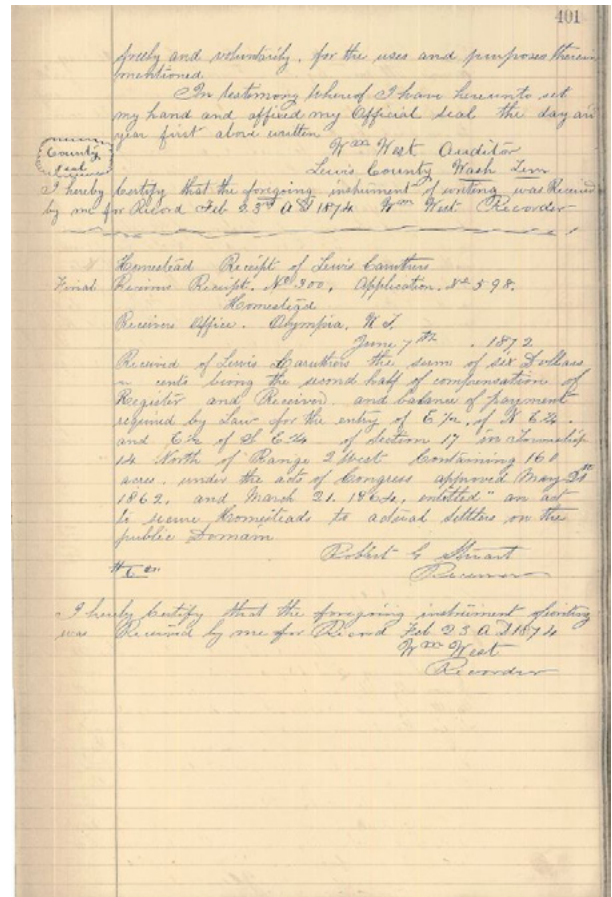 401
freely and voluntarily. for the uses and purposes therein
mentioned.
In testimony whereof I have hereunto set
my hand and affixed my Official seal the day an
year first above written
County
seal
Wm West Auditor
Lewis County Wash Terr
I hereby Certify that the foregoing instrument of writing was Received
by me for Record Feb 23rd A D 1874 Wm West Recorder
Homestead Receipt of Lewis Caruthers
Final Receivers Receipt. No 300, Application. No 598.
Homestead
Receivers Office. Olympia, W T.
June 7th . 1872
Received of Lewis Caruthers the sum of six Dollars
cents being the second half of compensation of
Register and Receiver. and balance of payment
required by Law for the entry of E 1/2, of N E 1/4.
and E 1/2 of S E 1/4 of Section 17 in Township
14 North of Range 2 West Containing 160
acres. under the acts of Congress approved May
1862, and March 21. 1864, entitled "an act
to secure Homesteads to actual settlers on the
public Domain
Robert G Stuart
Receiver
I hereby Certify that the foregoing instrument of writing
was Received by me for Record Feb 23 A D 1874
Wm West
Recorder